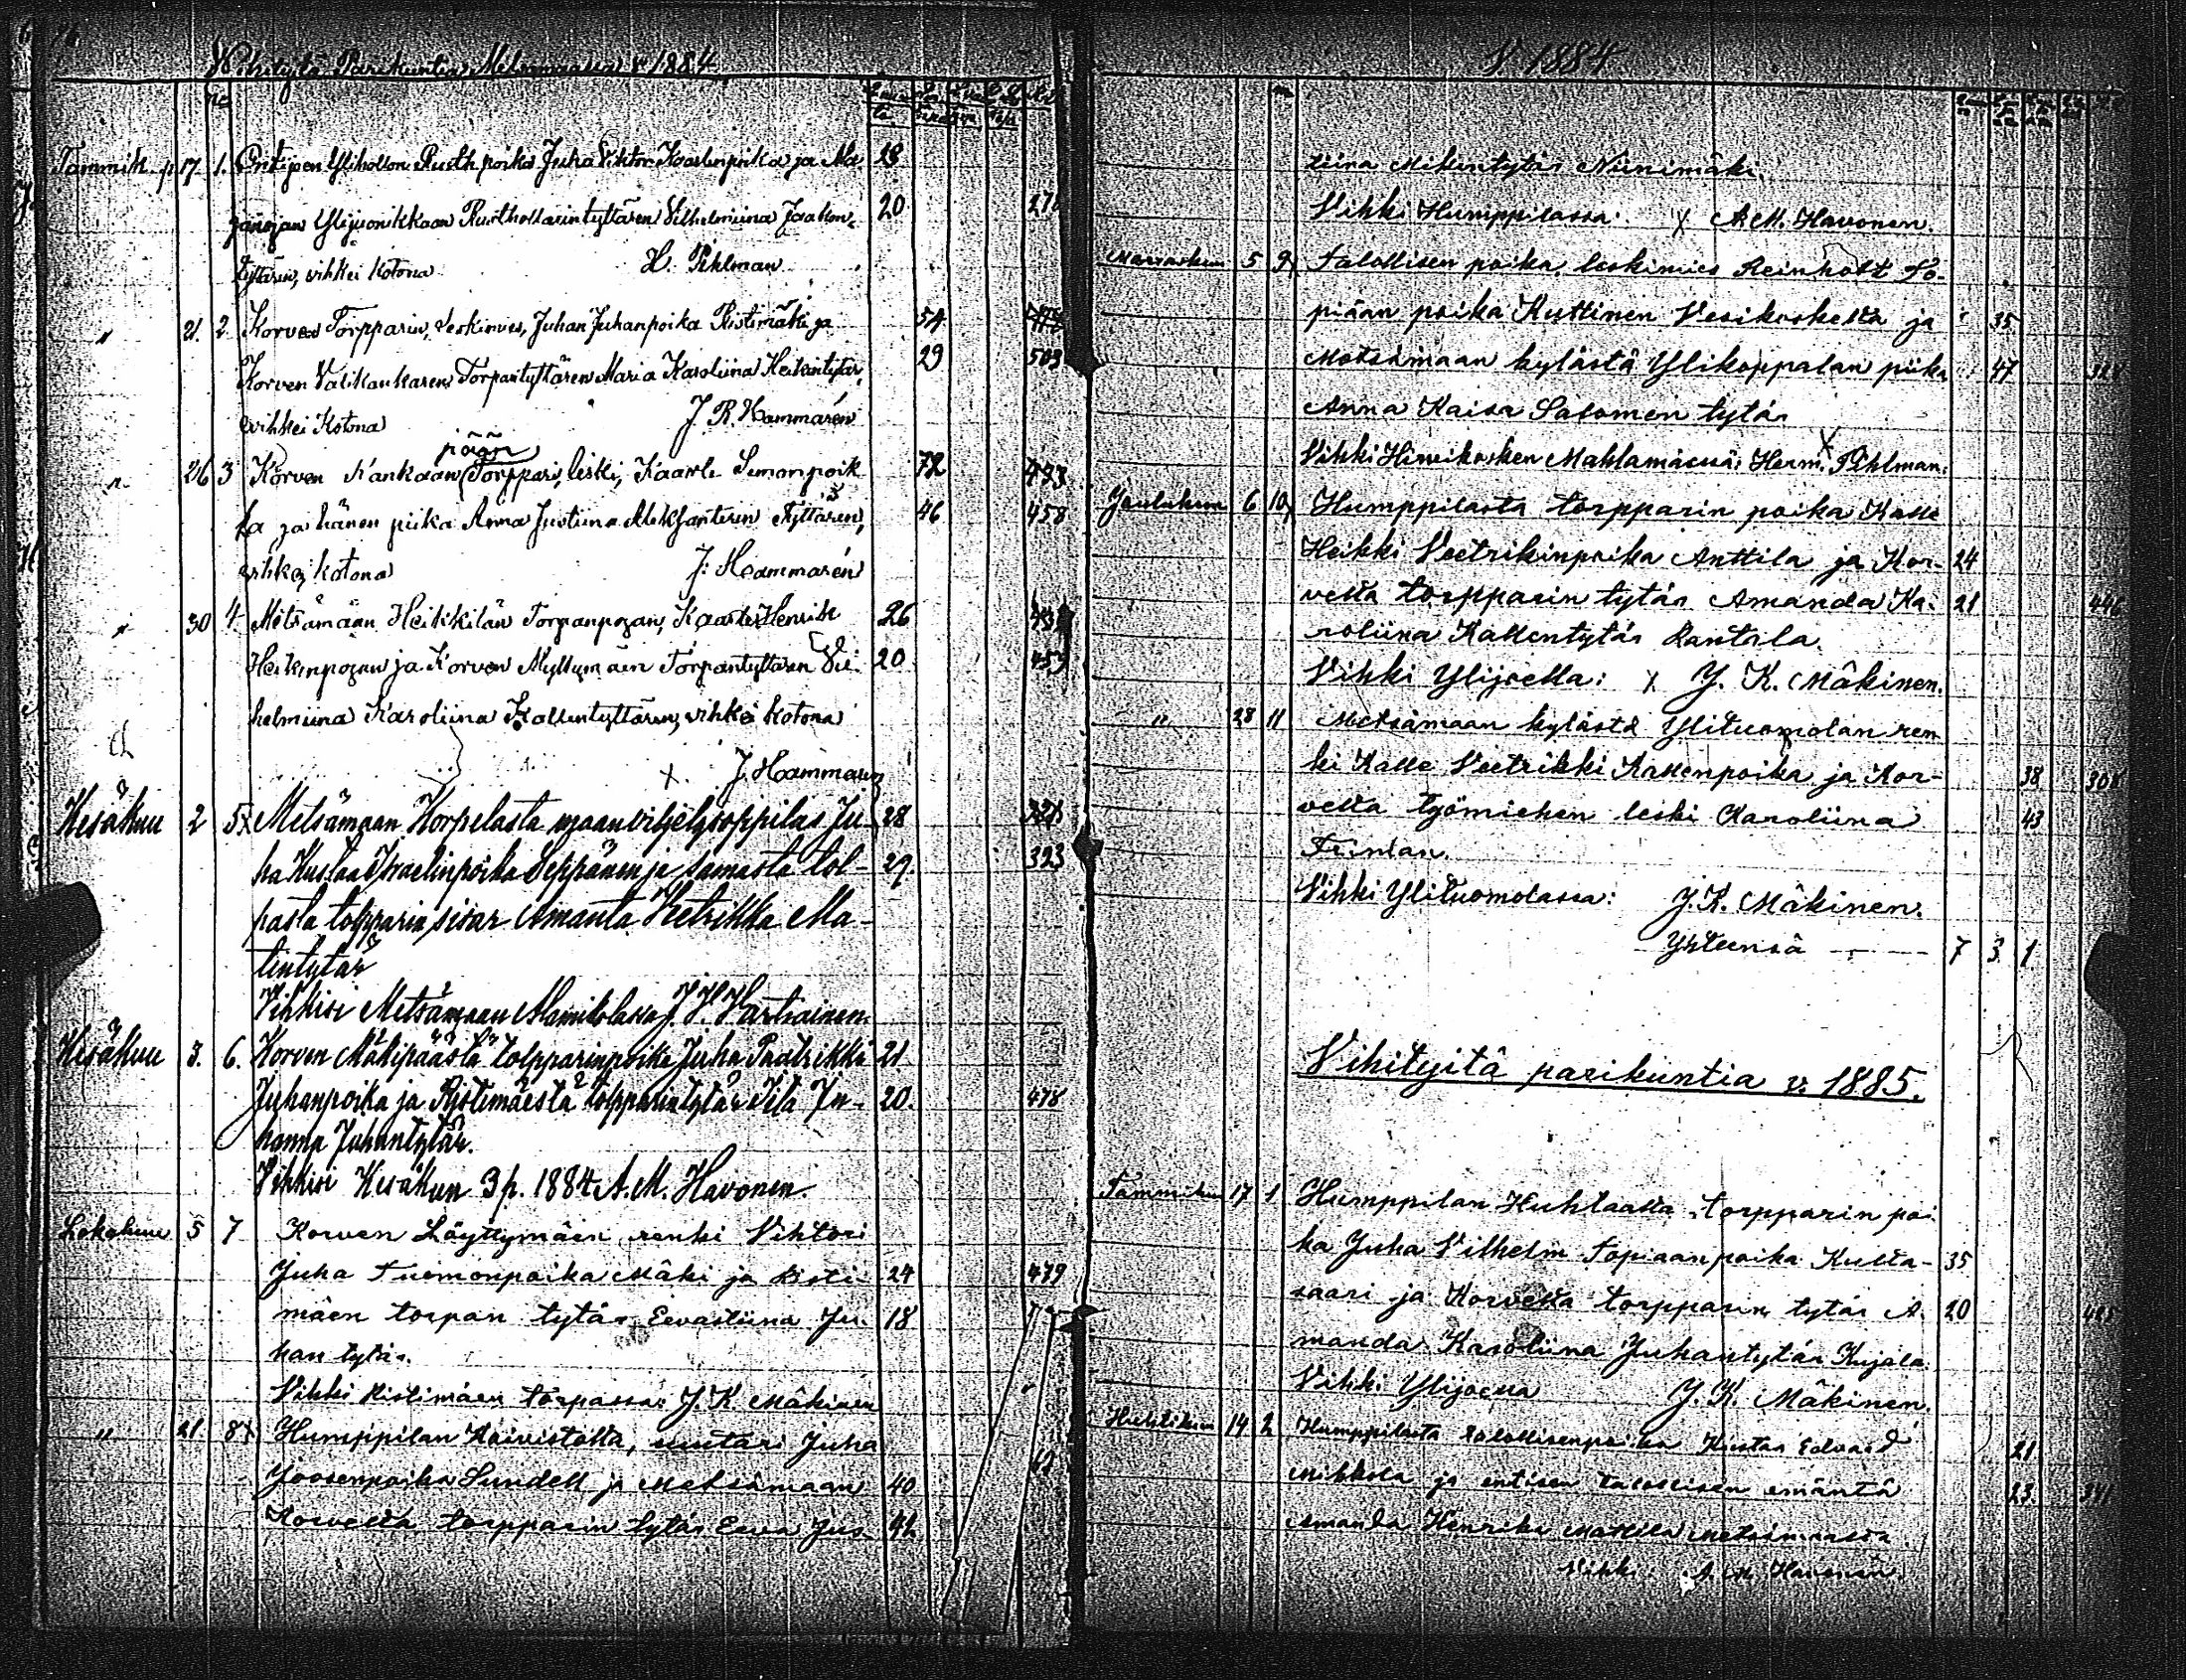 Vihityitä Parikuntia Metsämaassa v. 1884
Tammik. p. 17. 1. Yliholson Rusth. poika Juha Viktor Kaarlenpoika ja Ma- 28
janojan Ylijuonikkaan Rusthollarintyttären Vilhelmiina Jaakon- 20
tyttären, vihkei kotona H. Pihlman
" 21. 2 Korven Torpparin, Leskimies, Juhan Juhanpoika Ristimäki ja 54
Korven Valikankaren Torpantyttären Maria Karoliina Heikintytär, 29 503
vihkei Kotona J. R. Hammarén
pään
" 26 3 Korven Kankaan Torppari, leski, Kaarle Simonpoik 72 473
ka ja hänen piika Anna Justiina Aleksanterin Tyttären, 46 458
vihkei kotona J. Hammarén
" 30 4 Metsämaan Heikkilän Torpanpojan, Kaarle Henrik 26
Heikinpojan ja Korven Myllymäen Torpantyttären Vil- 20 459
helmiina Karoliina Kallentyttären, vihkei kotona
x. J. Hammarén
Kesäkuu 2 5x Metsämaan Korpelasta maanviljelysoppilas Ju- 28 321
ha Kustaa Israelinpoika Seppänen ja samasta tol- 29. 323
pasta tolpparin sisar Amanta Vetrikka Ma-
tintytär
Vihkisi Metsämaan Alamikolassa J. V. Vartiainen.
Kesäkuu 3. 6. Korven Mäkipäästä tolpparinpoika Juha Paatrikki 21
Juhanpoika ja Ristimäestä tolpparintytär Iita Ju- 20. 478
hanna Juhantytär.
Vihkisi Kesäkuu 3 p. 1884 A. M. Havonen.
Lokakuu 5 7 Korven Löyttymäen renki Vihtori
Juha Tuomonpoika Mäki ja Risti- 24 479
mäen torpan tytär Eevastiina Ju- 18
han tytär.
Vihki Ristimäen torpassa: J. K. Mäkinen
" 21 8x Humppilan Koivistolta, suutari Juha
Joosenpoika Lundell ja Metsämaan 40 62
Korvelta torpparin tytär Eeva Jus- 42
V. 1884
tiina Mikintytär Niinimäki.
Vihki Humppilassa: x A. M. Havonen.
Marraskuu 5 9x Talollisen poika, leskimies Reinholt To-
piaan poika Kuttinen Vesikoskelta ja 35
Metsämaan kylästä Ylikoppalan piika 47
Anna Kaisa Salomon tytär
Vihki Hirvikosken Mahlamäellä: Herm. Pihlman:
Joulukuu 6 10x Humppilasta torpparin poika Kalle
Heikki Veetrikinpoika Anttila ja Kor- 24
velta torpparin tytär Amanda Ka- 21 446
roliina Kallentytär Rantala.
Vihki Ylijoella: x J. K. Mäkinen.
" 28 11 Metsämaan kylästä Ylituomolan ren
ki Kalle Veetrikki Kallenpoika ja Kor- 38 308
velta työmiehen leski Karoliina 43
Vihki Ylituomolassa: J. K. Mäkinen.
Yhteensä — 7 3 1
Vihityitä parikuntia v. 1885.
Tammikuu 17 1 Humppilan Huhtaalta torpparin poi
ka Juha Vilhelm Topiaanpoika Kulta- 35
saari ja Korvelta torpparin tytär A- 20
manda Karoliina Juhantytär Kujala.
Vihki Ylijoella J. K. Mäkinen.
Huhtikuu 14 2 Humppilasta talollisenpoika Kustaa Edvard 21
Mikkola ja entisen talollisen emäntä 23.
Amanda Henrika Mattila Metsämaalta.
Vihki: A. M. Havonen.